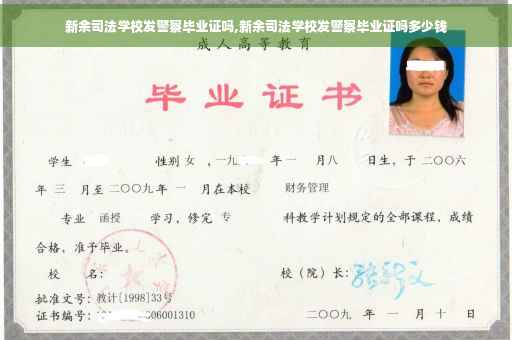 新余司法学校发警察毕业证吗,新余司法学校发警察毕业证吗多少钱
成人高等教育
毕业证书
学生 性别 女 ，一九 年 一 月 八 日生，于 二〇〇六
年 三 月至 二〇〇九 年 一 月在本校 财务管理
专业 函授 学习，修完 专 科教学计划规定的全部课程，成绩
合格，准予毕业。
校 名： 校（院）长：
批准文号：教计[1998]33号
证书编号： 06001310 二〇〇九 年 一 月 十 日